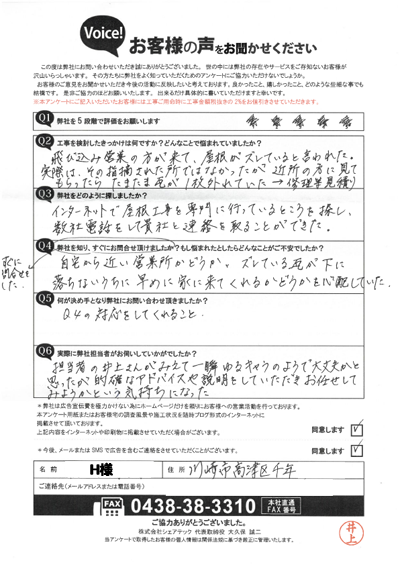 Voice!
お客様の声をお聞かせください
この度は弊社にお問い合わせいただき誠にありがとうございました。世の中には弊社の存在やサービスをご存知ないお客様が
沢山いらっしゃいます。その方たちに弊社をよく知っていただくためのアンケートにご協力いただけないでしょうか。
お客様のご意見をお聞かせいただき今後の活動に反映したいと考えております。良かったこと、嬉しかったこと、どのような些細な事でも
結構です。是非ご協力のほどお願いいたします。出来るだけ具体的に書いていただけますと幸いです。
※本アンケートにご記入いただいたお客様には工事ご用命時に工事金額税抜きの2%をお値引きさせていただきます。
Q1 弊社を5段階で評価をお願いします
Q2 工事を検討したきっかけは何ですか?どんなことで悩まれていましたか?
飛び込み営業の方が来て、屋根がズレていると言われた。
実際は、その指摘された所ではなかったが近所の方に見て
もらったらたまたま瓦が1枚外れていた→修理業見積り
Q3 弊社をどのように探しましたか?
インターネットで屋根工事を専門に行っているところを探し、
数社電話をして貴社と連絡を取ることができた。
Q4 弊社を知り、すぐにお問合せ頂けましたか?もし悩まれたとしたらどんなことがご不安でしたか?
すぐに
問合せを
した。
自宅から近い営業所かどうか。ズレている瓦が下に
落ちないうちに早めに家に来てくれるかどうかを心配していた。
Q5 何が決め手となり弊社にお問い合わせ頂きましたか?
Q4の対応をしてくれること。
Q6 実際に弊社担当者がお伺いしていかがでしたか?
担当者の井上さんがみえて一瞬ゆるキャラのようで大丈夫かと
思ったが的確なアドバイスや説明をしていただきお任せして
みようかという気持ちになった
※弊社は広告宣伝費を極力かけない為にホームページだけを頼りにお客様への営業活動を行っております。
本アンケート用紙またはお客様宅の調査風景や施工状況を随時ブログ形式のインターネットに
掲載させて頂いております。
上記内容をインターネットや印刷物に掲載させていただく場合がございます。 同意します ✓
※今後、メールまたはSMSで広告を含むご連絡をさせていただくことがございます。 同意します ✓
名前 H様 住所 川崎市高津区千年
ご連絡先(メールアドレスまたは電話番号)
FAX 0438-38-3310 本社直通 FAX番号
ご協力ありがとうございました。
株式会社シェアテック 代表取締役 大久保 誠二
当アンケートで取得したお客様の個人情報は関係法規に基づき厳正に管理いたします。
井上